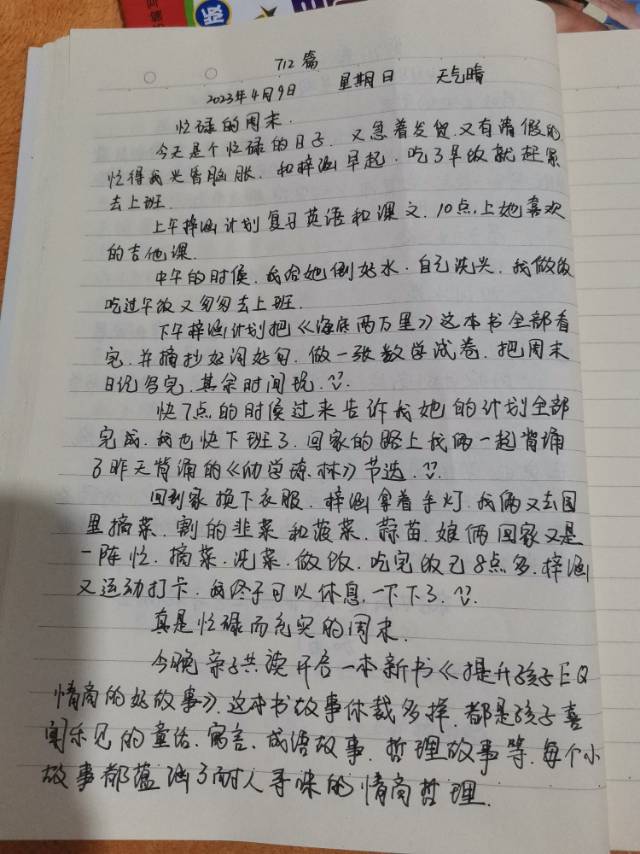 712篇
2023年4月9日 星期日 天气晴
忙碌的周末.
今天是个忙碌的日子.又急着发货.又有请假的
忙得我头昏脑胀.和梓涵早起.吃了早饭就赶紧
去上班.
上午梓涵计划复习英语和课文.10点上她喜欢
的吉他课.
中午的时候.我给她倒好水.自己洗头.我做饭
吃过午饭又匆匆去上班.
下午梓涵计划把《海底两万里》这本书全部看
完.并摘抄好词好句.做一张数学试卷.把周末
日记写完.其余时间玩.
快7点的时候过来告诉我她的计划全部
完成.我也快下班了.回家的路上我俩一起背诵
了昨天背诵的《幼学琼林》节选.
回到家换下衣服.梓涵拿着手灯.我俩又去园
里摘菜.割的韭菜和菠菜.蒜苗.娘俩回家又是
一阵忙.摘菜.洗菜.做饭.吃完饭已8点多.梓涵
又运动打卡.我终于可以休息一下下了.
真是忙碌而充实的周末.
今晚亲子共读开启一本新书《提升孩子EQ
情商的好故事》.这本书故事体裁多样.都是孩子喜
闻乐见的童话.寓言.成语故事.哲理故事等.每个小
故事都蕴涵了耐人寻味的情商哲理.